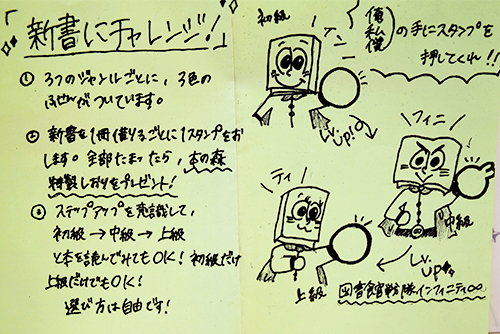 「新書にチャレンジ!」
① 3つのジャンルごとに、3色の
ふせんがついています。
② 新書を1冊借りるごとに1スタンプをお
します。全部たまったら、本の森
特製しおりをプレゼント!
③ ステップアップを意識して、
初級→中級→上級
と本を読んでみてもOK! 初級だけ
上級だけでもOK!
選び方は自由です!
俺
私
僕
の手にスタンプを
押してくれ!!
初級
イン
Lv.
up!
フィニ
中級
Lv.
up
ティ
上級
図書館戦隊インフィニティ∞